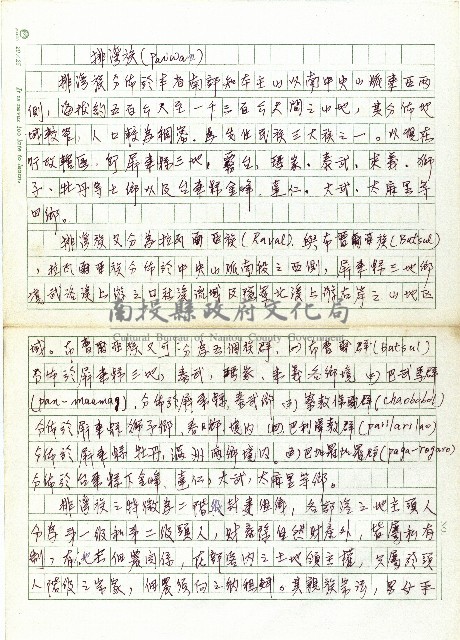 排灣族(Paiwan)
排灣族分佈於本省南部知本主山以南中央山脈東西兩
側,海拔約五百公尺至一千三百公尺間之山地,其分佈地
域較窄,人口較為稠密,為先住民族三大族之一。以現在
行政轄區,即屏東縣三地、霧台、瑪家、泰武、來義、獅
子、牡丹等七鄉以及台東縣金峰、達仁、大武、太麻里等
四鄉。
排灣族又分為拉瓦爾亞族(Raval)與布曹爾亞族(Batsul)
,拉瓦爾亞族分佈於中央山脈南段之西側,屏東縣三地鄉
境武洛溪上游之口社溪流域區
南投縣政府文化局
Cultural Bureau of Nantou County Government
域。布曹爾亞族又可分為五個族群,(一)布曹爾群(Batsul)
分佈於屏東縣三地、泰武、瑪家、來義各鄉境(二)巴武馬群
(pau-maumaq),分佈於屏東縣泰武鄉(三)
分佈於屏東縣獅子鄉、春日鄉境內(四)巴利澤敖群(parilarilao)
分佈於屏東縣牡丹、滿州兩鄉境內。(五)巴加羅加羅群(paqa-roqaro)
分佈於台東縣下金峰、達仁、大武、太麻里等鄉。
排灣族之特徵為二階級封建組織,各部落之地主頭人
分為第一級和第二級頭人,財產除自然財產外,皆屬私有
制,有地主佃農關係,故部落內之土地領主權,只屬於頭
人階級之宗家,佃農須向之納租賦。其親族宗法,男女平